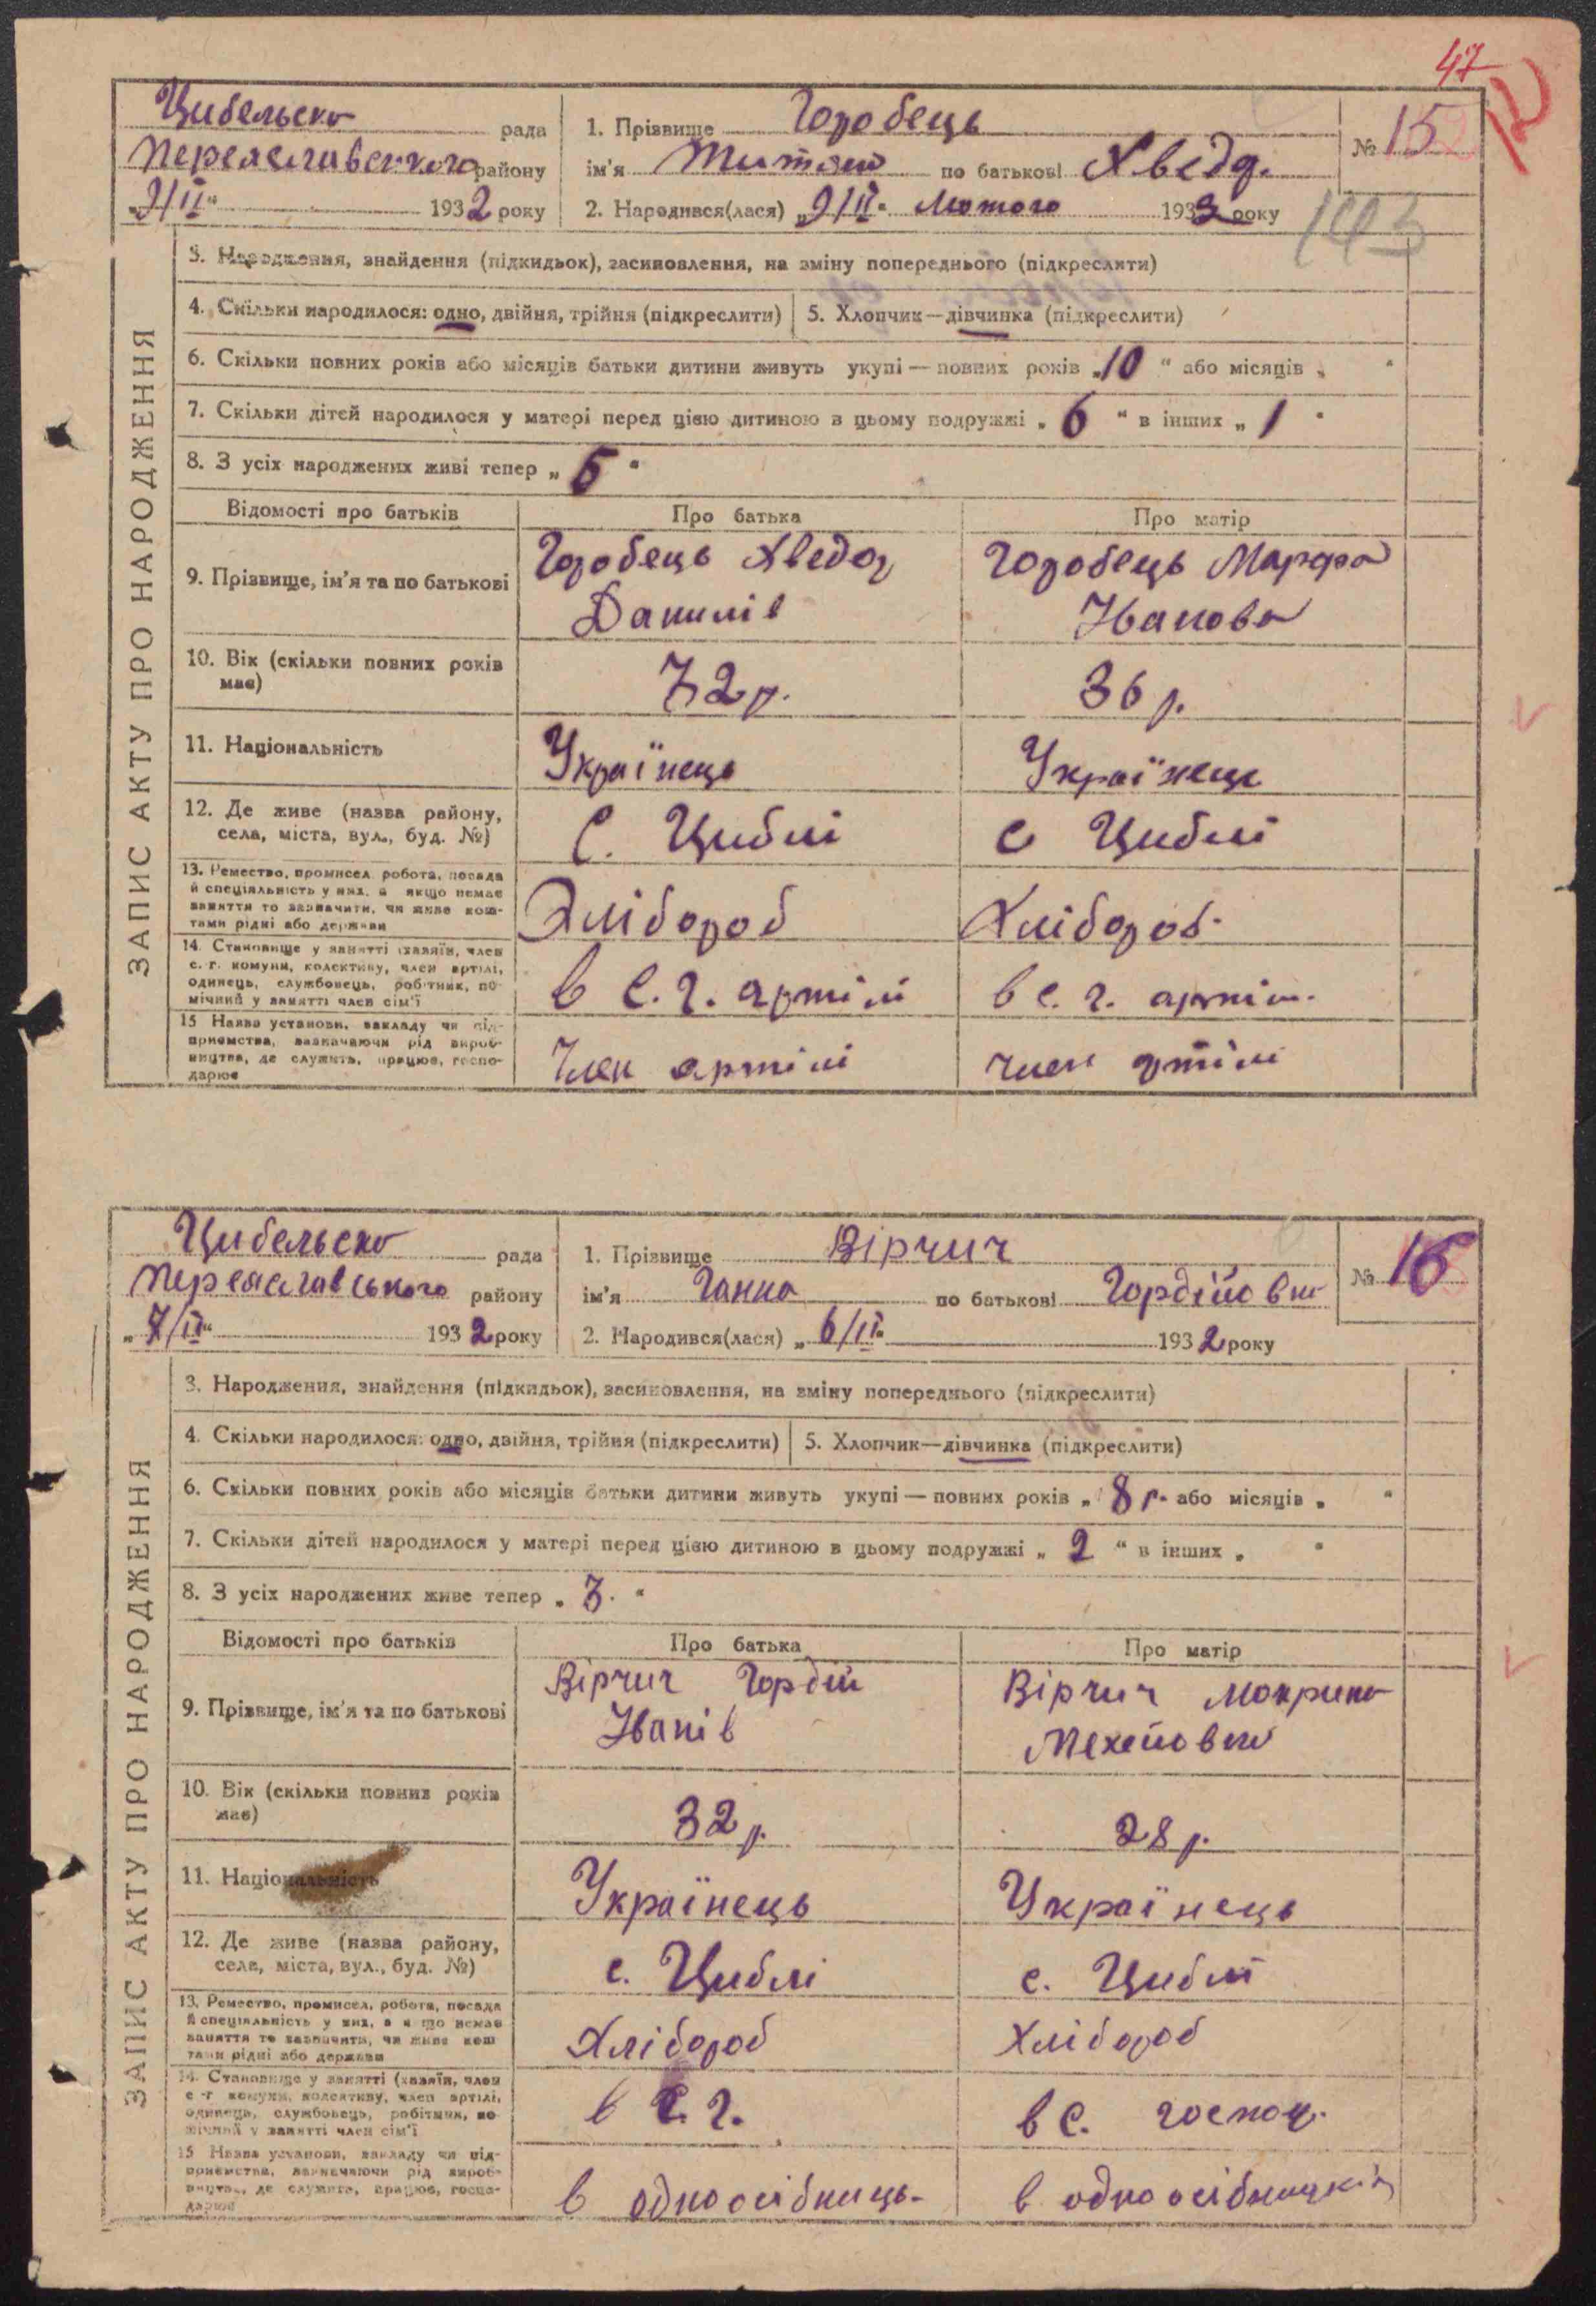 47
Цибельска рада
Переяславського району
„9/ІІ“ 1932 року
1. Прізвище Горобець
ім'я по батькові Хведор.
2. Народився(лася) „9/ІІ“ Лютого 1932 року
№ 15
143
ЗАПИС АКТУ ПРО НАРОДЖЕННЯ
3. Народження, знайдення (підкидьок), засиновлення, на зміну попереднього (підкреслити)
4. Скільки народилося: одно, двійня, трійня (підкреслити)
5. Хлопчик—дівчинка (підкреслити)
6. Скільки повних років або місяців батьки дитини живуть укупі — повних років „10“ або місяців „ “
7. Скільки дітей народилося у матері перед цією дитиною в цьому подружжі „6“ в інших „1“
8. З усіх народжених живі тепер „5“
Відомості про батьків
Про батька
Про матір
9. Прізвище, ім'я та по батькові
Горобець Хведор
Данилів
Горобець Марфа
Іванова
10. Вік (скільки повних років
має)
42 р.
36 р.
11. Національність
Українець
Українець
12. Де живе (назва району,
села, міста, вул., буд. №)
С. Циблі
с Циблі
13. Ремество, промисел, робота, посада
й спеціяльність у них, а якщо немає
заняття то зазначити, чи живе кош-
тами рідні або держави
Хлібороб
Хлібороб.
14. Становище у занятті (хазяїн, член
с.-г. комуни, колективу, член артілі,
одинець, службовець, робітник, по-
мічний у занятті член сім'ї
в С. г. артілі
в с. г. артіл.
15 Назва установи, закладу чи під-
приємства, зазначаючи рід вироб-
ництва, де служить, працює, госпо-
дарює
Член артілі
член артілі
Цибельска рада
Переяславського району
„7/ІІ“ 1932 року
1. Прізвище Вірчич
ім'я Ганна по батькові Гордійовна
2. Народився(лася) „6/ІІ“ 1932 року
№ 16
ЗАПИС АКТУ ПРО НАРОДЖЕННЯ
3. Народження, знайдення (підкидьок), засиновлення, на зміну попереднього (підкреслити)
4. Скільки народилося: одно, двійня, трійня (підкреслити)
5. Хлопчик—дівчинка (підкреслити)
6. Скільки повних років або місяців батьки дитини живуть укупі — повних років „8 р. або місяців „ “
7. Скільки дітей народилося у матері перед цією дитиною в цьому подружжі „2“ в інших „ “
8. З усіх народжених живе тепер „3.“
Відомості про батьків
Про батька
Про матір
9. Прізвище, ім'я та по батькові
Вірчич Гордій
Іванів
Вірчич Мокрина
10. Вік (скільки повних років
має)
32 р.
28 р.
11. Національність
Українець
Українець
12. Де живе (назва району,
села, міста, вул., буд. №)
с. Циблі
с. Циблі
13. Ремество, промисел, робота, посада
й спеціяльність у них, а якщо немає
заняття то зазначити, чи живе кош
тами рідні або держави
Хлібороб
Хлібороб
14. Становище у занятті (хазяїн, член
с-г комуни, колективу, член артілі,
одинець, службовець, робітник, по-
мічний у занятті член сім'ї
в С. г.
в с. господ.
15 Назва установи, закладу чи під-
приємства, зазначаючи рід вироб-
ництва, де служить, працює, госпо-
дарює
в одноосібниць-
в одноосібницькім